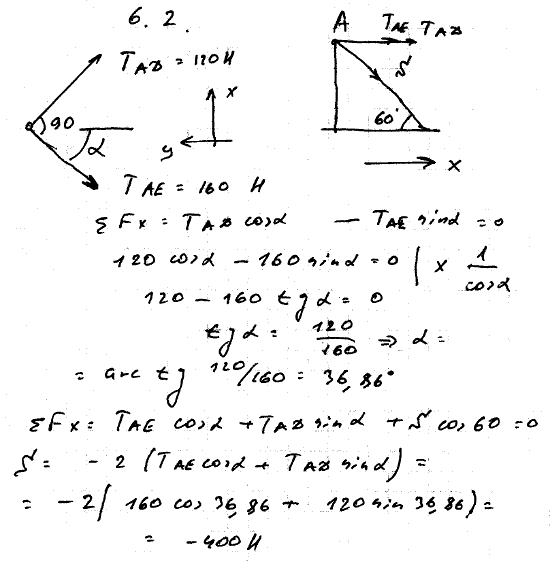 6. 2.
A T_AE T_AD
T_AD = 120 Н
S
90
x
60°
α
y
x
T_AE = 160 Н
ΣFx = T_AD cosα – T_AE sinα = 0
120 cosα – 160 sinα = 0 | × 1/cosα
120 – 160 tg α = 0
tg α = 120/160 ⇒ α =
= arc tg 120/160 = 36,86°
ΣFx = T_AE cosα + T_AD sinα + S cos 60 = 0
S = – 2 (T_AE cosα + T_AD sinα) =
= – 2 ( 160 cos 36,86 + 120 sin 36,86) =
= – 400 Н